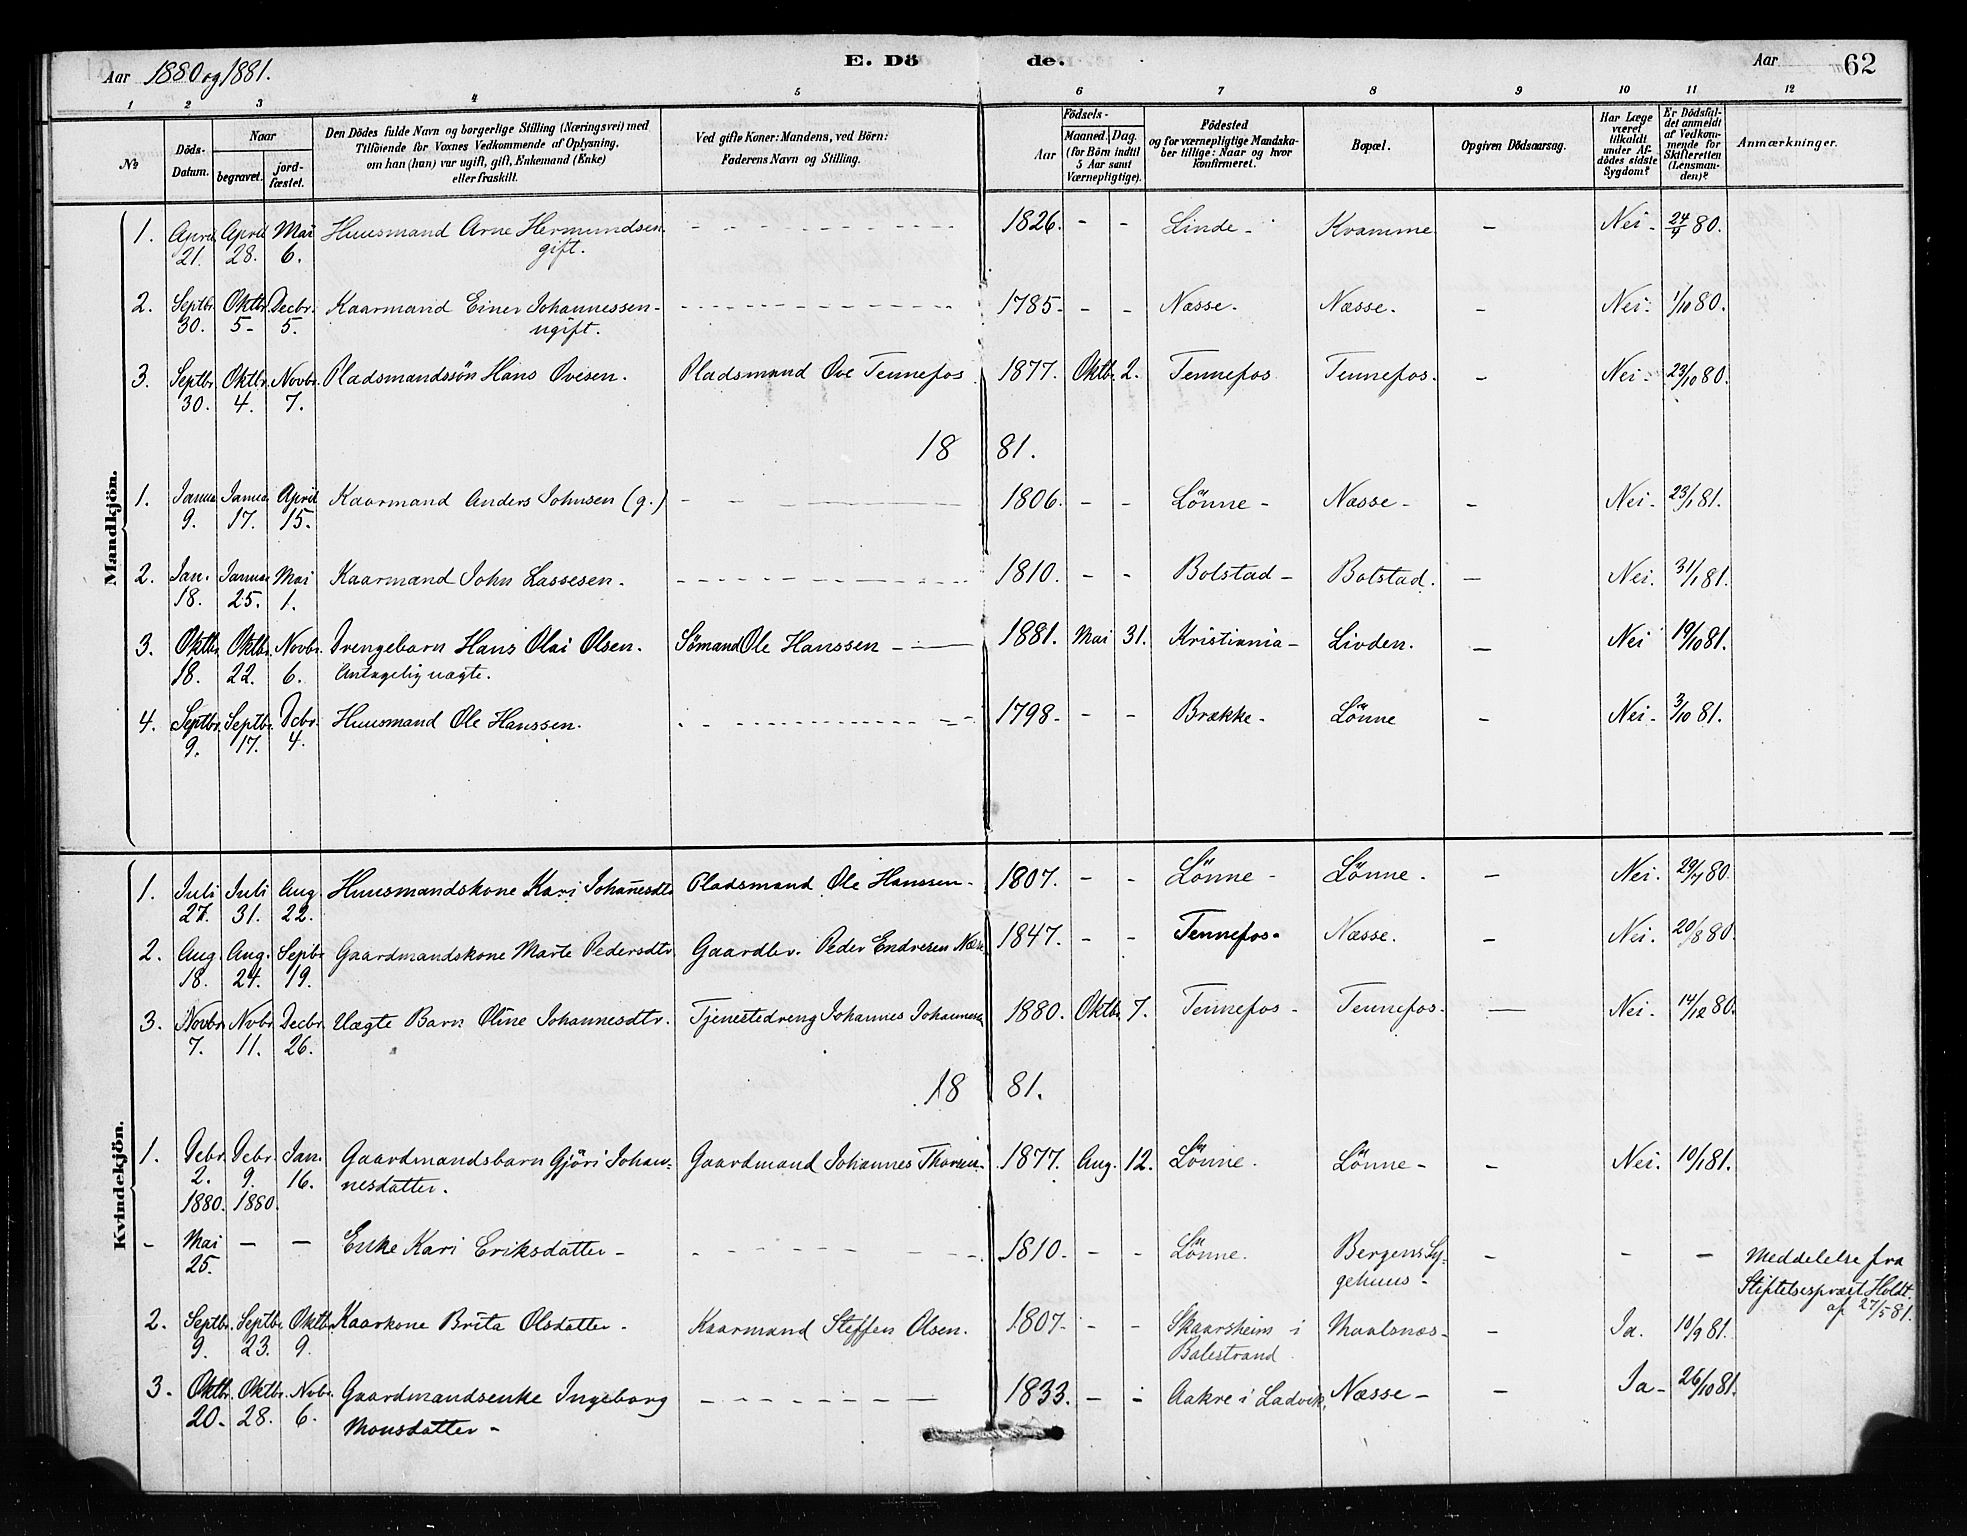 Aar 1880 og 1881. E. Dö de. Aar 62
1 2 3 4 5 6 7 8 9 10 11 12
№
Döds-Datum.
Naar
begravet.
jord-fæstet.
Den Dödes fulde Navn og borgerlige Stilling (Næringsvei) med
Tilföiende for Voxnes Vedkommende af Oplysning,
om han (hun) var ugift, gift, Enkemand (Enke)
eller fraskilt.
Ved gifte Koner: Mandens, ved Börn:
Faderens Navn og Stilling.
Födsels-
Aar
Maaned. Dag.
(for Börn indtil
5 Aar samt
Værnepligtige).
Födested
og for værnepligtige Mandska-
ber tillige: Naar og hvor
konfirmeret.
Bopæl.
Opgiven Dödsaarsag.
Har Læge
været
tilkaldt
under Af-
dödes sidste
Sygdom?
Er Dödsfal-
det anmeldt
af Vedkom-
mende for
Skifteretten
(Lensman-
den)?
Anmærkninger.
Mandkjön.
1. April 21. April 28. Mai 6. Huusmand Arne Hermundsen gift. - 1826. - - Linde - Kvamme - Nei - 24/4 80.
2. Septbr. 30. Oktbr. 5 - Decbr. 5. Kaarmand Einer Johannessen - ugift. - 1785 - - - Næsse. Næsse. - Nei - 1/10 80.
3. Septbr. 30. Oktbr. 4. Novbr. 7. Pladsmandssön Hans Ovesen. Pladsmand Ove Tennefos 1877. Oktb. 2. Tennefos Tennefos. - Nei - 23/10 80.
1881.
1. Janua 9. Janua 17. April 15. Kaarmand Anders Johnsen (g.) - 1806. - - Lönne - Næsse - - Nei - 23/1 81.
2. Jan. 18. Janua 25. Mai 1. Kaarmand John Lassesen. - 1810. - - Bolstad - Bolstad. - Nei. 31/1 81.
3. Oktbr. 18. Oktbr. 22. Novbr. 6. Drengebarn Hans Olai Olsen. Antagelig uægte. Sömand Ole Hanssen - 1881. Mai 31. Kristiania - Livden. - Nei 19/10 81.
4. Septbr. 9. Septbr. 17. Dcbr. 4. Huusmand Ole Hanssen. - 1798 - - - Brække - Lönne - Nei - 3/10 81.
Kvindekjön.
1. Juli 27. Juli 31. Aug. 22. Huusmandskone Kari Johañesdtr Pladsmand Ole Hanssen - 1807. - - Lönne - Lönne. - Nei. 29/7 80.
2. Aug. 18. Aug. 24. Septbr 19. Gaardmandskone Marte Pedersdtr Gaardbr. Peder Endresen Næsse 1847. - - Tennefos. Næsse. - Nei. 20/8 80.
3. Novbr 7. Nvbr. 11. Decbr. 26. Uægte Barn Oline Johannesdtr. Tjenestedreng Johannes Johannesen 1880. Oktb. 7. Tennefos - Tennefos. - Nei. 14/12 80.
1881.
1. Debr. 2. 1880. Debr. 9. 1880. Jan. 16. Gaardmandsbarn Gjöri Johan-
nesdatter. Gaardmand Johannes 1877. Aug. 12. Lönne. Lönne - - Nei. 10/1 81.
- Mai 25. - - Enke Kari Eriksdatter - - 1810. - - Lönne. Bergens Sy-
gehuus - - - - Meddelelse fra
Stiftelsespræst Holdt
af 27/5 81.
2. Septbr. 9. Septbr. 23. Oktbr. 9. Kaarkone Brita Olsdatter - Kaarmand Steffen Olsen. 1807 - - - Skaarsheim i
Balestrand Maalsnes - - Ja. 10/9 81.
3. Oktbr. 20 - Oktbr. 28. Nvbr. 6. Gaardmandsenke Ingeborg
Monsdatter - - 1833. - - Aakre i Ladvik, Næsse - - Ja - 26/10 81.